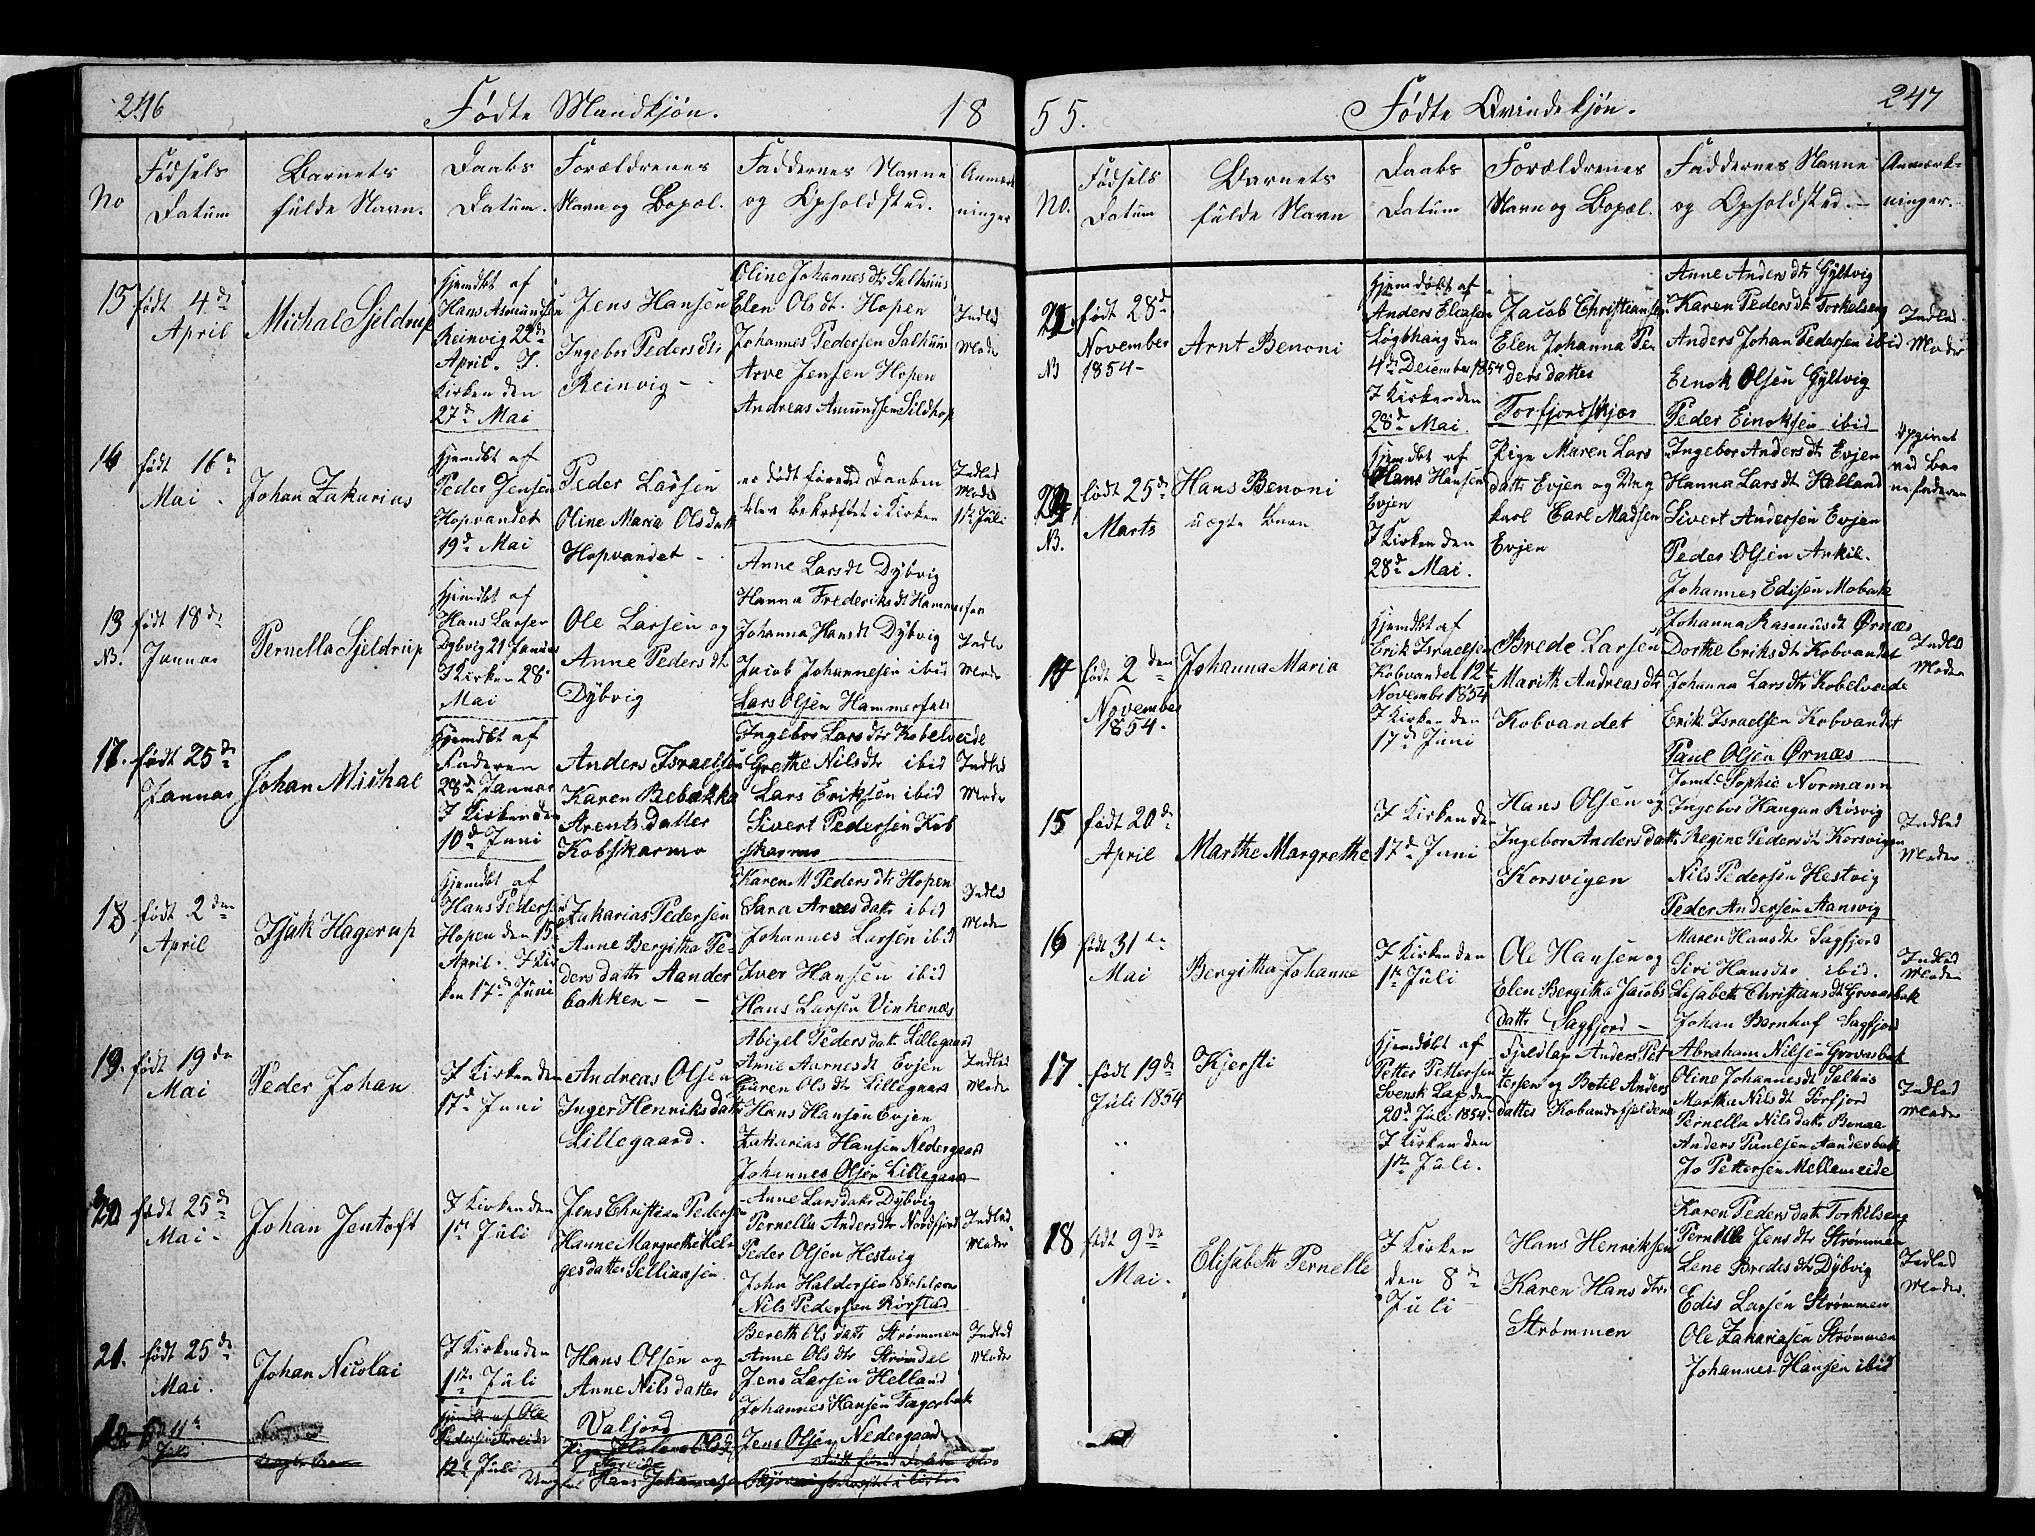 246 Fødte Mandkjøn. 18
No
Fødsels
Datum
Barnets
fulde Navn.
Daabs
Datum.
Forældrenes
Navn og Bopæl.
Faddernes Navne
og Opholdsted.
Anmær
ninger
15 født 4de
April
Michal Sjeldrup
Hjemdbt af
Hans Asmundsen
Reinvig 22de
April. I
Kirken den
27de Mai
Jens Hansen
Ingebor Pedersdtr
Reinvig -
Oline Johannesdtr Saltuus
Elen Olsdt. Hopen
Johannes Pedersen Saltuus
Arve Jensen Hopen
Andreas Amundsen Sildhop
Indled
Mode
16 født 16de
Mai.
Johan Zakarias
Hjemdbt af
Peder Jensen
Hopvandet
19de Mai
Peder Larsen
Oline Maria Olsdatt
Hopvandet -
er dødt førend Daaben
blev bekræftet i Kirken
Indled
Mode
1ste Juli
13 født 18de
NB. Januar
Pernella Sjeldrup
Hjemdbt af
Hans Larsen
Dybvig 21 Januar
I Kirken 28
Mai
Ole Larsen og
Anne Pedersdt
Dybvig
Anne Larsdt Dybvig
Hanna Frederiksdt Hammerfas
Johanna Hansdt Dybvig
Jacob Johannesen ibid
Lars Olsen Hammerfas
Indle
Mode
17. født 25de
Januar
Johan Michal
Hjemdbt af
Faderen
28de Januar
I Kirken den
10de Juni
Anders Israelsen
Karen Rebekka
Arentsdatter
Kobskarmo
Ingebor Larsdtr Kobelveide
Grethe Nilsdtr ibid
Lars Eriksen ibid
Sivert Pedersen Kob
skarmo
Indled
Mode
18 født 2den
April
Isak Hagerup
Hjemdbt af
Hans Pedersen
Hopen den 15
April. I Kir
ken 17de Juni
Zakarias Pedersen
Anne Bergitha Pe-
dersdatt Aander
bakken - -
Karen M Pedersdtr Hopen
Sara Arvesdatt ibid
Johannes Larsen ibid
Iver Hansen ibid
Hans Larsen Virkenæs
Indled
Mode
19. født 19de
Mai
Peder Johan
I Kirken den
17de Juni
Andreas Olsen
Inger Henriksdatt
Lillegaard.
Abigel Pedersdatt Lillegaard
Anne Aarnesdt Evjen
Guren Olsdtr Lillegaard
Hans Hansen Evjen
Zakarias Hansen Nedergaard
Johannes Olsen Lillegaard
Indled
Mode
20 født 25de
Mai.
Johan Jentoft
I Kirken den
1ste Juli
Jens Christian Pedersen
Hanne Margrethe Hel-
gesdatter Selliaasen
Anne Larsdatt Dybvig
Pernella Andersdtr Nordfjord
Peder Olsen Hestvig
John Haldorsen Skolelærer
Nils Pedersen Rørstad
Indled
Mode
21. født 25de
Mai.
Johan Nicolai
I Kirken den
1ste Juli
Hans Olsen og
Anne Nilsdatter
Valjord
Bereth Olsdatt Strømmen
Anne Olsdtr Strømdal
Jens Larsen Helland
Johannes Hansen Fagerbak
Jens Olsen Nedergaard
Indled
Mode
11te
Juli
uægte Barn
hjemdbt af Ole
Pedersen
12te Juli
Pige Olsd
Ungkarl Hans Johannesen
dødt førend Daaben blev
i Kirken
55. Fødte Qvindekjøn. 247
No.
Fødsels
Datum
Barnets
fulde Navn
Daabs
Datum
Forældrenes
Navn og Bopæl.
Faddernes Navne
og Opholdsted.
Anmærk-
ninger.
født 28de
November
NB 1854 -
Arnt Benoni
Hjemdøbt af
Anders Eliasen
Løgbhaug den
4de December 1854
I Kirken den
28de Mai.
Jacob Christiansen
Elen Johanna Pe
dersdatter
Torfjordskjær
Anne Andersdtr Gyltvig
Karen Pedersdt Torkelseng
Anders Johan Pedersen ibid
Einok Olsen Gyltvig
Peder Einoksen ibid
Indled
Moder
født 25de
NB. Marts
Hans Benoni
uægte Barn
Hjemdbt af
Hans Hansen
Evjen
I Kirken den
28de Mai.
Pige Maren Lars
datt Evjen og Ung
karl Earl Madsen
Evjen
Ingebor Andersdt Evjen
Hanna Larsdt Helland
Sivert Andersen Evjen
Peder Olsen Ankil.
Johannes Edisen Mobak
Opgivet
ved Bar
nefaderen
14 født 2den
November
1854.
Johanna Maria
Hjemdbt af
Erik Israelsen
Kobvandet 12te
November 1854
I Kirken den
17de Juni
Brede Larsen
Marith Andreasdtr
Kobvandet
Johanna Rasmusdt Ørnæs
Dorthe Eriksdt Kobvandet
Johanna Larsdtr Kobelveide
Erik Israelsen Kobvandet
Paul Olsen Ørnæs
Indled
Moder
15 født 20de
April
Marthe Margrethe
I Kirken den
17de Juni
Hans Olsen og
Ingebor Andersdatt
Korsvigen
Jomf. Sophie Normann
Ingebor Hangan Røsvig
Regine Pedersdt Korsvigen
Nils Pedersen Hestvig
Peder Andersen Aansvig
Indled
Moder
16 født 31te
Mai
Bergitha Johanne
I Kirken den
1ste Juli
Ole Hansen og
Elen Bergitha Jacobs
datt Sagfjord -
Maren Hansdtr Sagfjord
Siri Hansdtr ibid.
Elisabeth Christiansdt Grovasbak
Johan Bernhof Sagfjord
Abraham Nilsen Grovasbak
Indled
Moder
17 født 19de
Juli 1854
Kjersti
Hjemdøbt af
Petter Pettersen
Svensk Lap den
20de Juli 1854.
I Kirken den
1ste Juli.
Fjeldlap Anders Pet
tersen og Botil Anders
datter Kobandsfjeldene
Oline Johannesdt Saltuis
Martha Nilsdt Torfjord
Pernella Nilsdatt Bonaa
Anders Paulsen Aanderbak
Jo Pettersen Mellameide
Indled
Moder
18 født 9de
Mai.
Elisabeth Pernelle
I Kirken
den 8de
Juli
Hans Henriksen
Karen Hansdtr
Strømmen
Karen Pedersdatt Torkilseng
Pernille Jensdtr Strømmen
Lene Bredesdtr Dybvig
Edis Larsen Strømmen
Ole Zakariasen Strømmen
Johannes Hansen ibid
Indled
Moder.